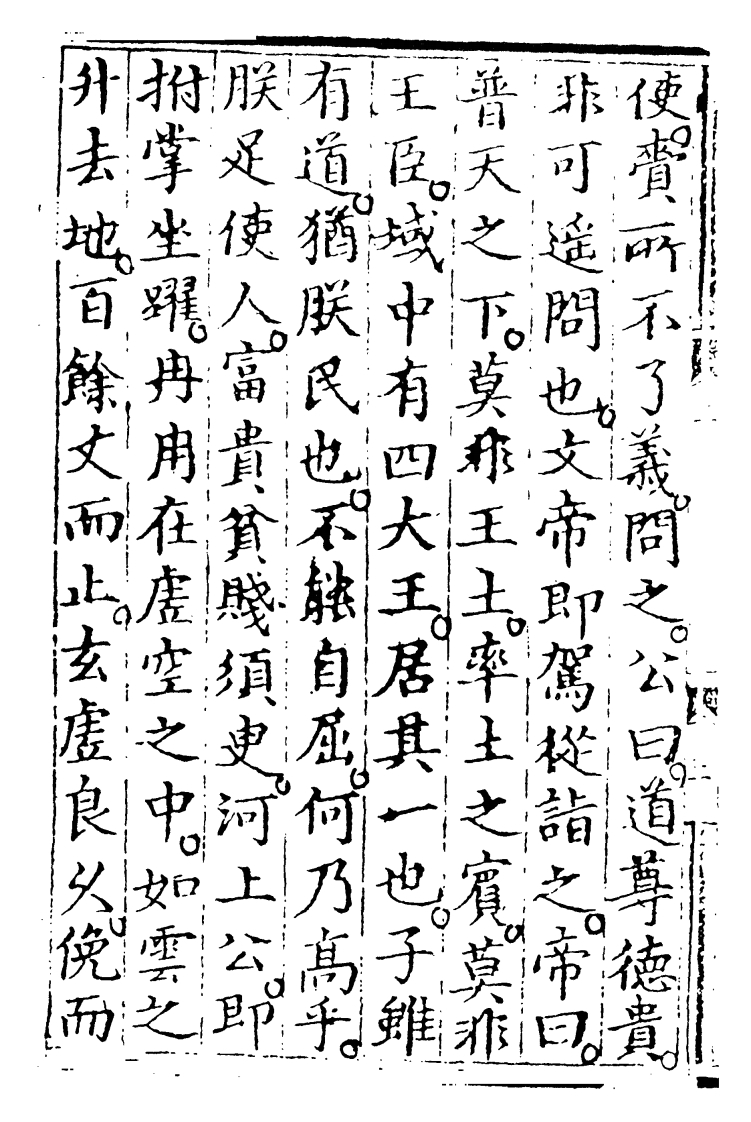 使。賫所不了義。問之。公曰。道尊德貴。
非可遥問也。文帝即駕從詣之。帝曰。
普天之下。莫非王土。率土之賓。莫非
王臣。域中有四大王。居其一也。子雖
有道。猶朕民也。不能自屈。何乃高乎。
朕足使人。富貴貧賤須㬰。河上公。即
拊掌坐躍。冉冉在虛空之中。如雲之
升去地。百餘丈而止。玄虛良久。俛而